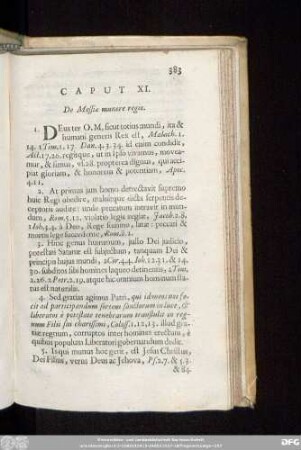 383
CAPUT XI.
De Messiæ munere regio.
1. DEus ter O. M. sicut totius mundi, ita &
humani generis Rex est, Malach. 1.
14. 1 Tim. 1. 17. Dan. 4. 3. 34. id enim condidit,
Act. 17. 20. regitque, ut in ipso vivamus, movea-
mur, & simus, vs. 28. propterea dignus, qui acci-
piat gloriam, & honorem & potentiam, Apoc.
4. 11.
2. At primus jam homo detrectavit supremo
huic Regi obedire, maluitque dicta serpentis de-
ceptoris audire: unde peccatum intravit in mun-
dum, Rom. 5. 12. violatio legis regiæ, Jacob. 2. 8.
1 Joh. 3. 4. à Deo, Rege summo, latæ: peccati &
mortis lege succedente, Rom. 8. 2.
3. Hinc genus humanum, justo Dei judicio,
potestati Satanæ est subjectum, tanquam Dei &
principis hujus mundi, 2 Cor. 4. 4. Joh. 12. 31. & 14.
30. subditos sibi homines laqueo detinentis, 2 Tim.
2. 26. 2 Petr. 2. 19. atque hic oratione hominum sta-
tus est naturalis.
4. Sed gratias agimus Patri, qui idoneos nos fe-
cit ad participandum sortem sanctorum in luce, &
liberavit à potestate tenebrarum transtulit in re-
gnum Filii sui charissimi, Coloss. 1. 12, 13. illud gra-
tiæ regnum, corruptos inter homines erectum, &
quibus populum Liberatori gubernandum dedit.
5. Isque munus hoc gerit, est Jesus Christus,
Dei Filius, verus Deus ac Jehova, Ps. 2. 7. & 5. 3.
& 84.